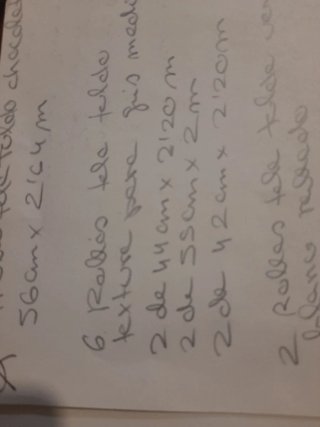 tela toldo chocolate
56cm x 2'64 m
6 Rollos tela toldo
textura para gris medi
2 de 44cm x 2'20 m
2 de 55cm x 2 m
2 de 42cm x 2'20m
2 Rollos tela toldo
blanco rallado